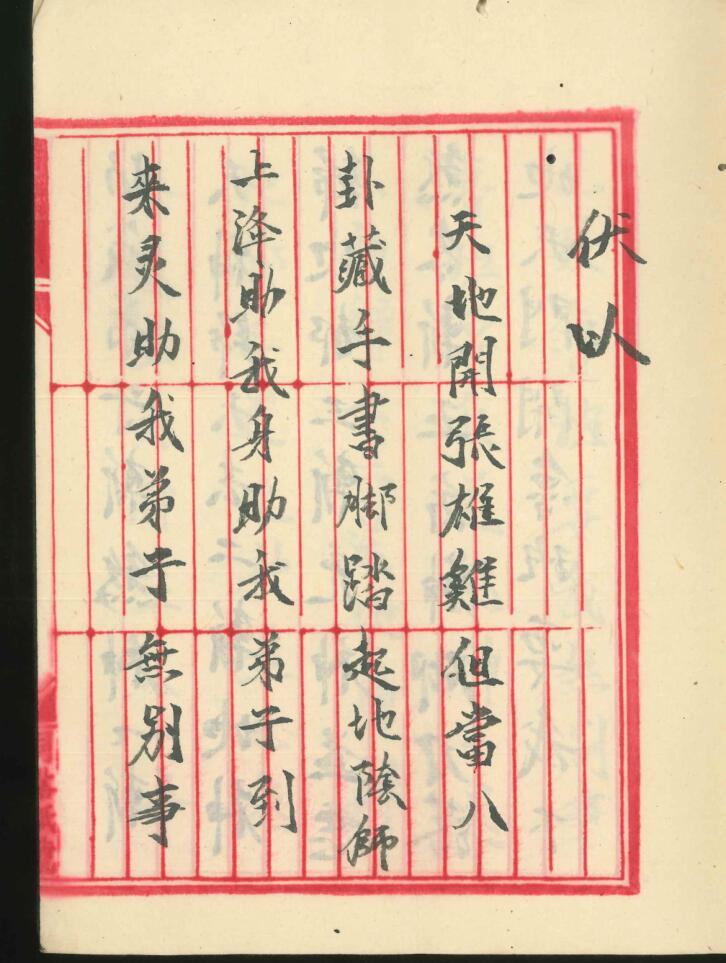 伏以
天地開張雄雞但當八
卦藏手書脚踏起地陰師
上降助我身助我弟子到
来灵助我弟子無别事